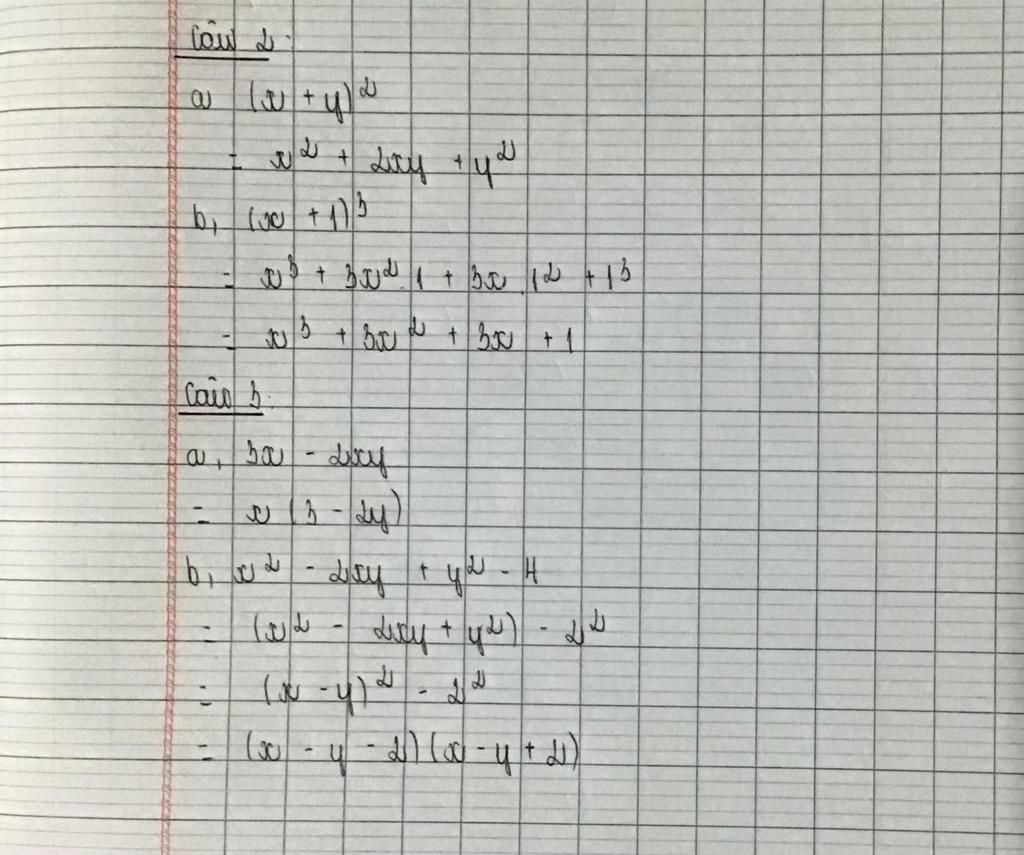 Câu 2.
a, (x + y)²
= x² + 2xy + y²
b, (x + 1)³
= x³ + 3x².1 + 3x.1² + 1³
= x³ + 3x² + 3x + 1
Câu 3.
a, 3x - 2xy
= x(3 - 2y)
b, x² - 2xy + y² - 4
= (x² - 2xy + y²) - 2²
= (x - y)² - 2²
= (x - y - 2)(x - y + 2)